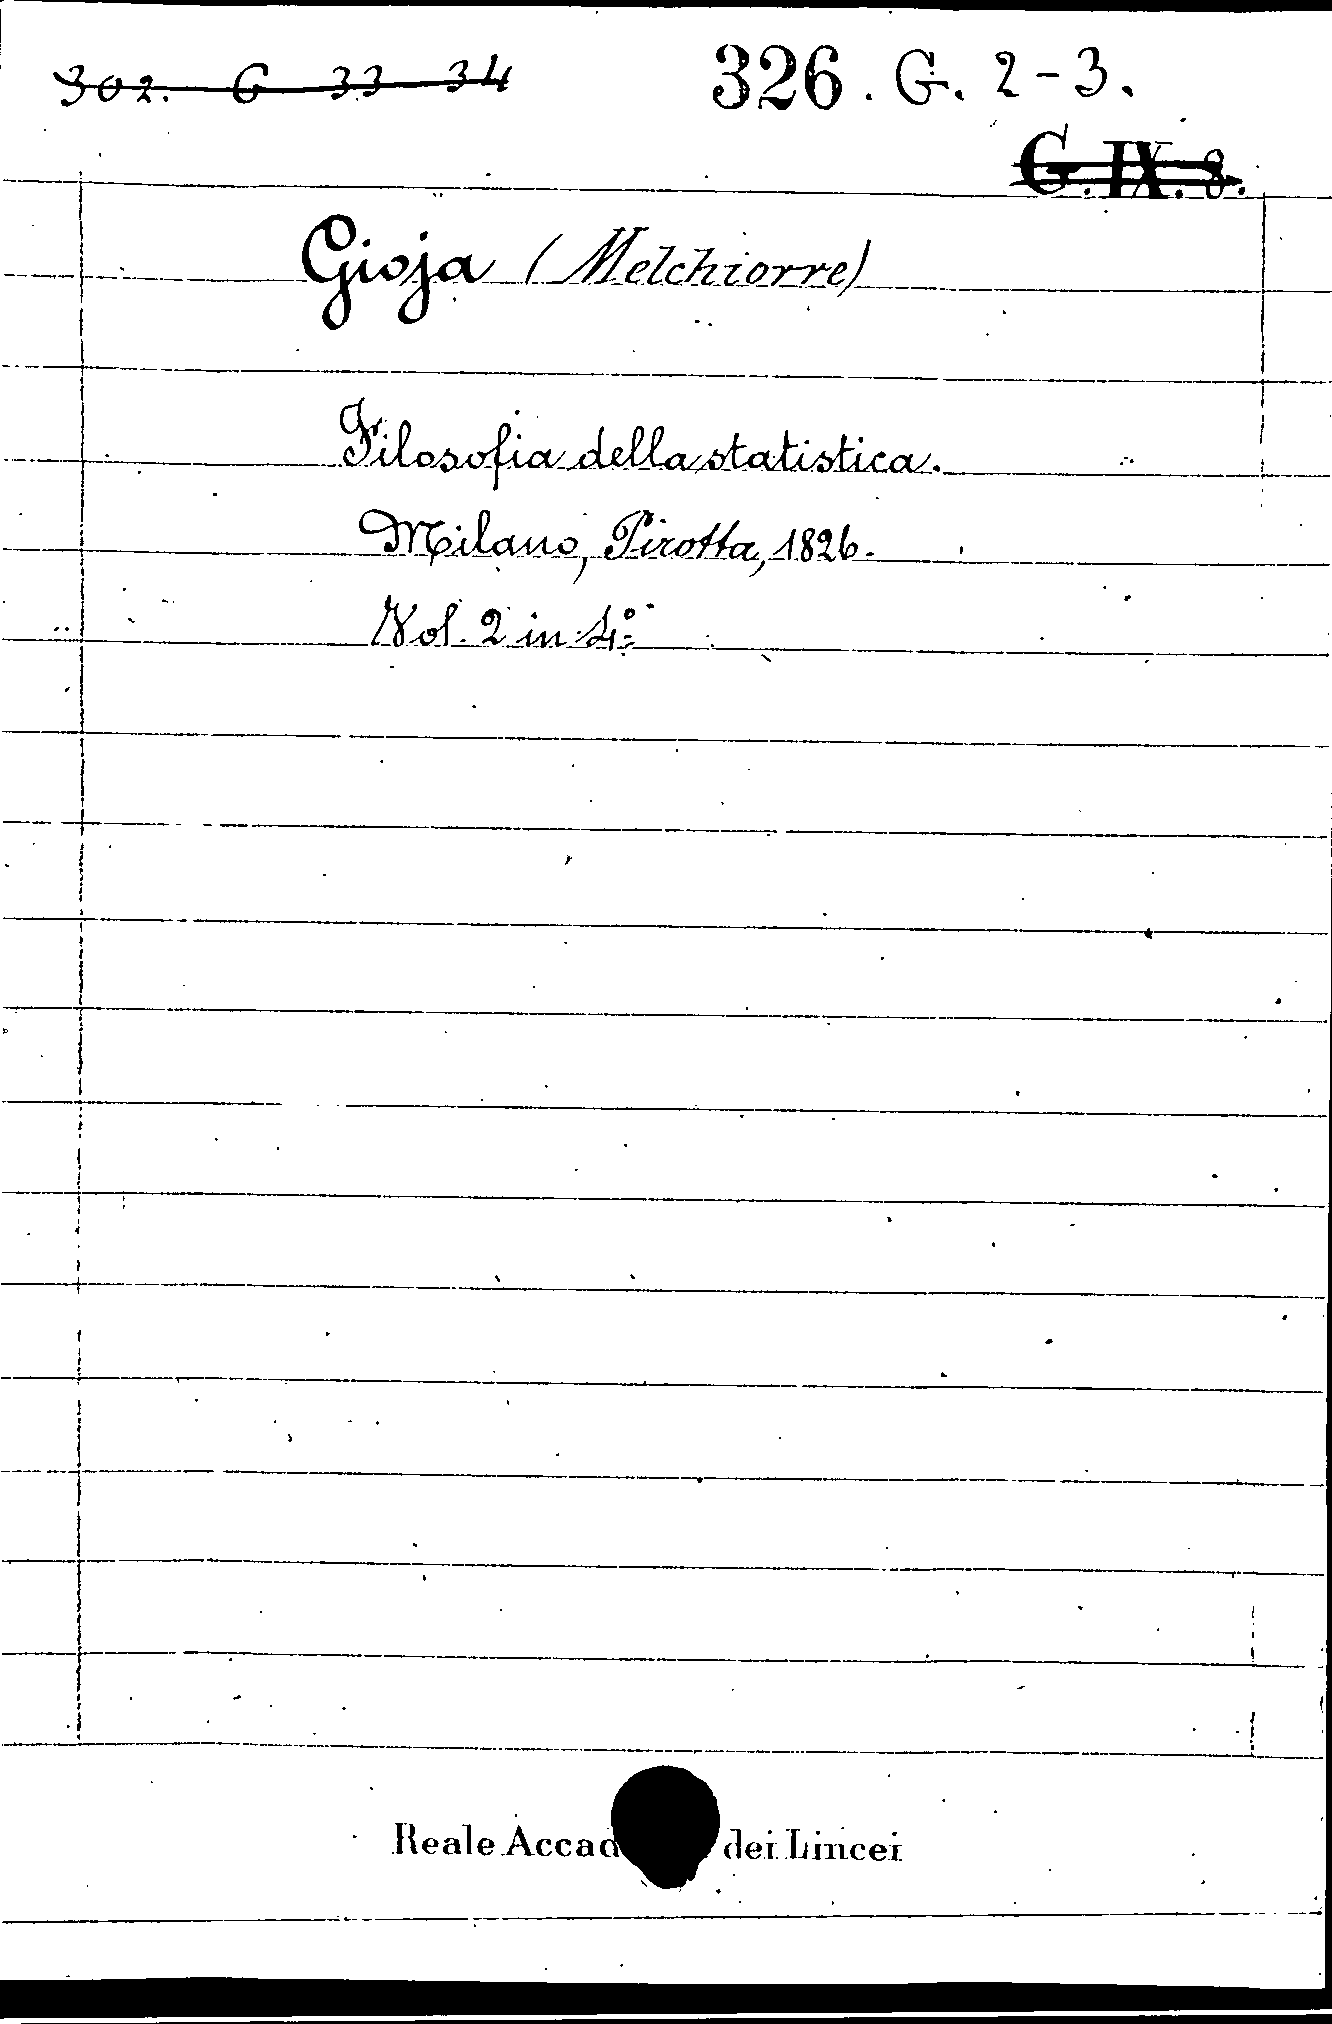 302. G 33-34
326. G. 2-3.
G. IX. 8.
Gioja (Melchiorre)
Filosofia della statistica.
Milano, Pirotta, 1826.
Vol. 2 in 4.°
Reale Accad dei Lincei